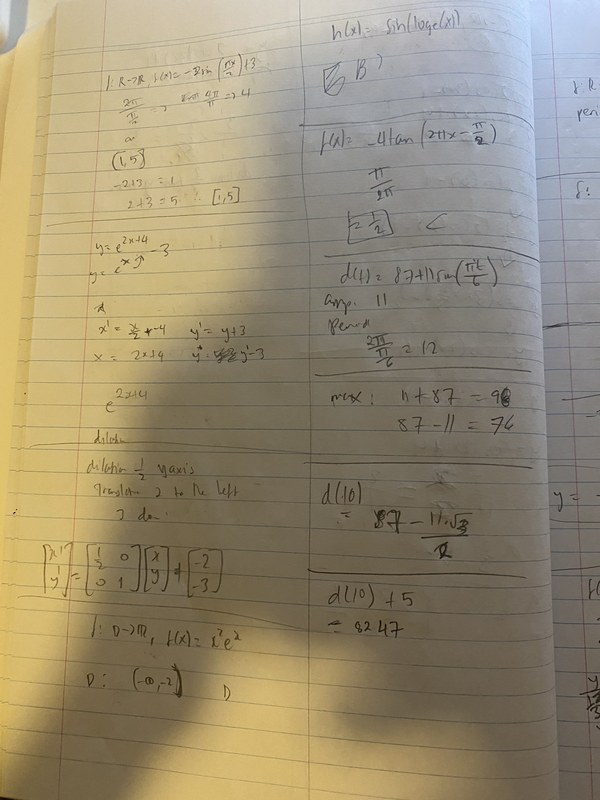 f: R→R f(x) = -2sin(πx/2)+3
2π/(π/2) => 4π/π => 4
[1,5]
-2+3 = 1
2+3 = 5 ∴ [1,5]
y = e^(2x+4) - 3
y = e^x
x' = x/2 - 4 y' = y+3
x = 2x+4 y'-3
e^(2x+4)
dilation 1/2 y axis
translate 2 to the left
3 down
[x' y'] = [1/2 0 0 1][x y] + [-2 -3]
f: D→R, f(x) = x²e^x
D: (-∞,-2] D
h(x) = sin(loge(x))
B
f(x) = -4tan(2πx - π/2)
π/2π
= 1/2
d(t) = 87+11sin(πt/6)
amp. 11
Period
2π/(π/6) = 12
max: 11+87 = 98
87-11 = 76
d(10)
= 87 - 11√3/2
d(10) + 5
= 82.47
y = -